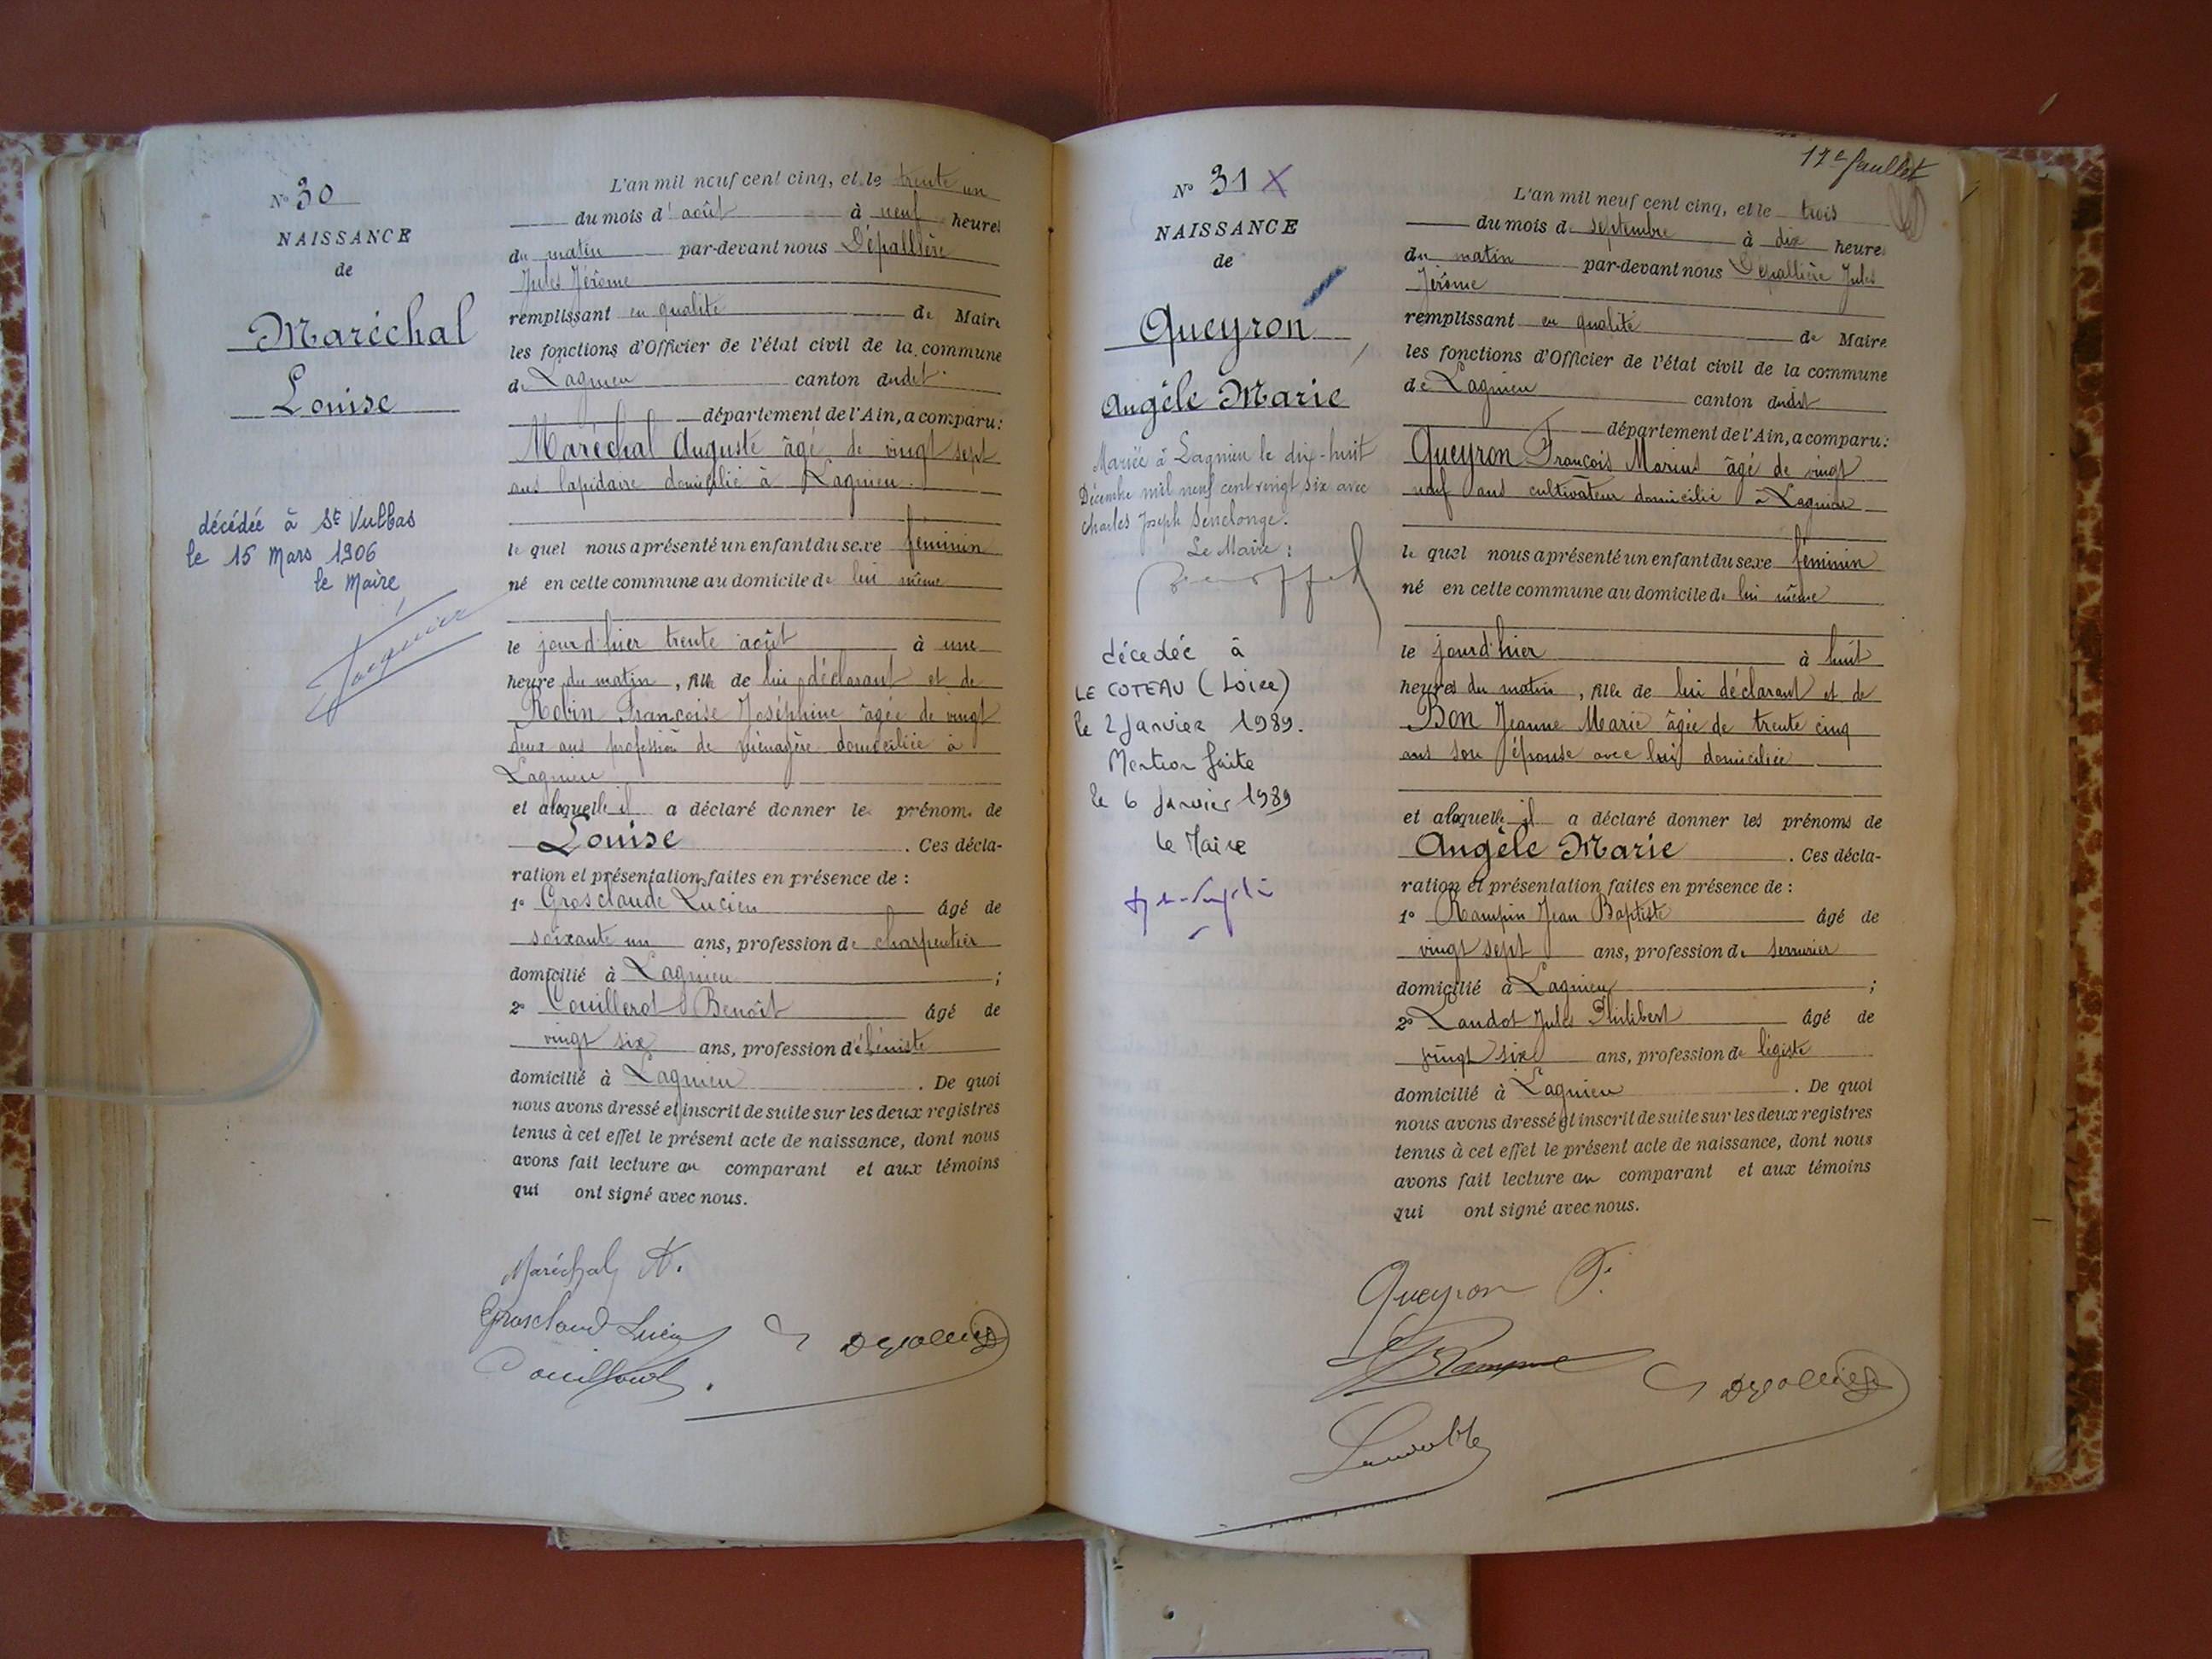 N° 30
NAISSANCE
de
Maréchal
Louise
décédée à St Vulbas
le 15 Mars 1906
le Maire
L'an mil neuf cent cinq, et le trente un
du mois d'août à neuf heures
du matin par-devant nous Dépallière
Jules Jérôme
remplissant en qualité de Maire
les fonctions d'Officier de l'état civil de la commune
de Lagnieu canton dudit
département de l'Ain, a comparu:
Maréchal Auguste âgé de vingt sept
ans lapidaire domicilié à Lagnieu
le quel nous a présenté un enfant du sexe féminin
né en cette commune au domicile de lui même
le jour d'hier trente août à une
heure du matin, fille de lui déclarant et de
Robin Françoise Joséphine âgée de vingt
deux ans profession de ménagère domiciliée à
Lagnieu
et alaquelle il a déclaré donner le prénom de
Louise. Ces décla-
ration et présentation faites en présence de :
1° Grosclaude Lucien âgé de
soixante un ans, profession de charpentier
domicilié à Lagnieu ;
2° Couillerot Benoît âgé de
vingt six ans, profession d'ébéniste
domicilié à Lagnieu. De quoi
nous avons dressé et inscrit de suite sur les deux registres
tenus à cet effet le présent acte de naissance, dont nous
avons fait lecture au comparant et aux témoins
qui ont signé avec nous.
Maréchal A.
Grosclaud Lucien
17e feuillet
N° 31 X
NAISSANCE
de
Queyron
Angèle Marie
Mariée à Lagnieu le dix-huit
Décembre mil neuf cent vingt six avec
Charles Joseph Senclonge.
Le Maire :
décédée à
LE COTEAU (Loire)
le 2 Janvier 1989.
Mention faite
le 6 Janvier 1989
le Maire
L'an mil neuf cent cinq, et le trois
du mois de septembre à dix heures
du matin par-devant nous Dépallière Jules
Jérôme
remplissant en qualité de Maire
les fonctions d'Officier de l'état civil de la commune
de Lagnieu canton dudit
département de l'Ain, a comparu:
Queyron François Marius âgé de vingt
neuf ans cultivateur domicilié à Lagnieu
le quel nous a présenté un enfant du sexe féminin
né en cette commune au domicile de lui même
le jour d'hier à huit
heures du matin, fille de lui déclarant et de
Bon Jeanne Marie âgée de trente cinq
ans son épouse avec lui domiciliée
et alaquelle il a déclaré donner les prénoms de
Angèle Marie. Ces décla-
ration et présentation faites en présence de :
1° Rampin Jean Baptiste âgé de
vingt sept ans, profession de serrurier
domicilié à Lagnieu ;
2° Landot Jules Philibert âgé de
vingt six ans, profession de légiste
domicilié à Lagnieu. De quoi
nous avons dressé et inscrit de suite sur les deux registres
tenus à cet effet le présent acte de naissance, dont nous
avons fait lecture au comparant et aux témoins
qui ont signé avec nous.
Queyron F.